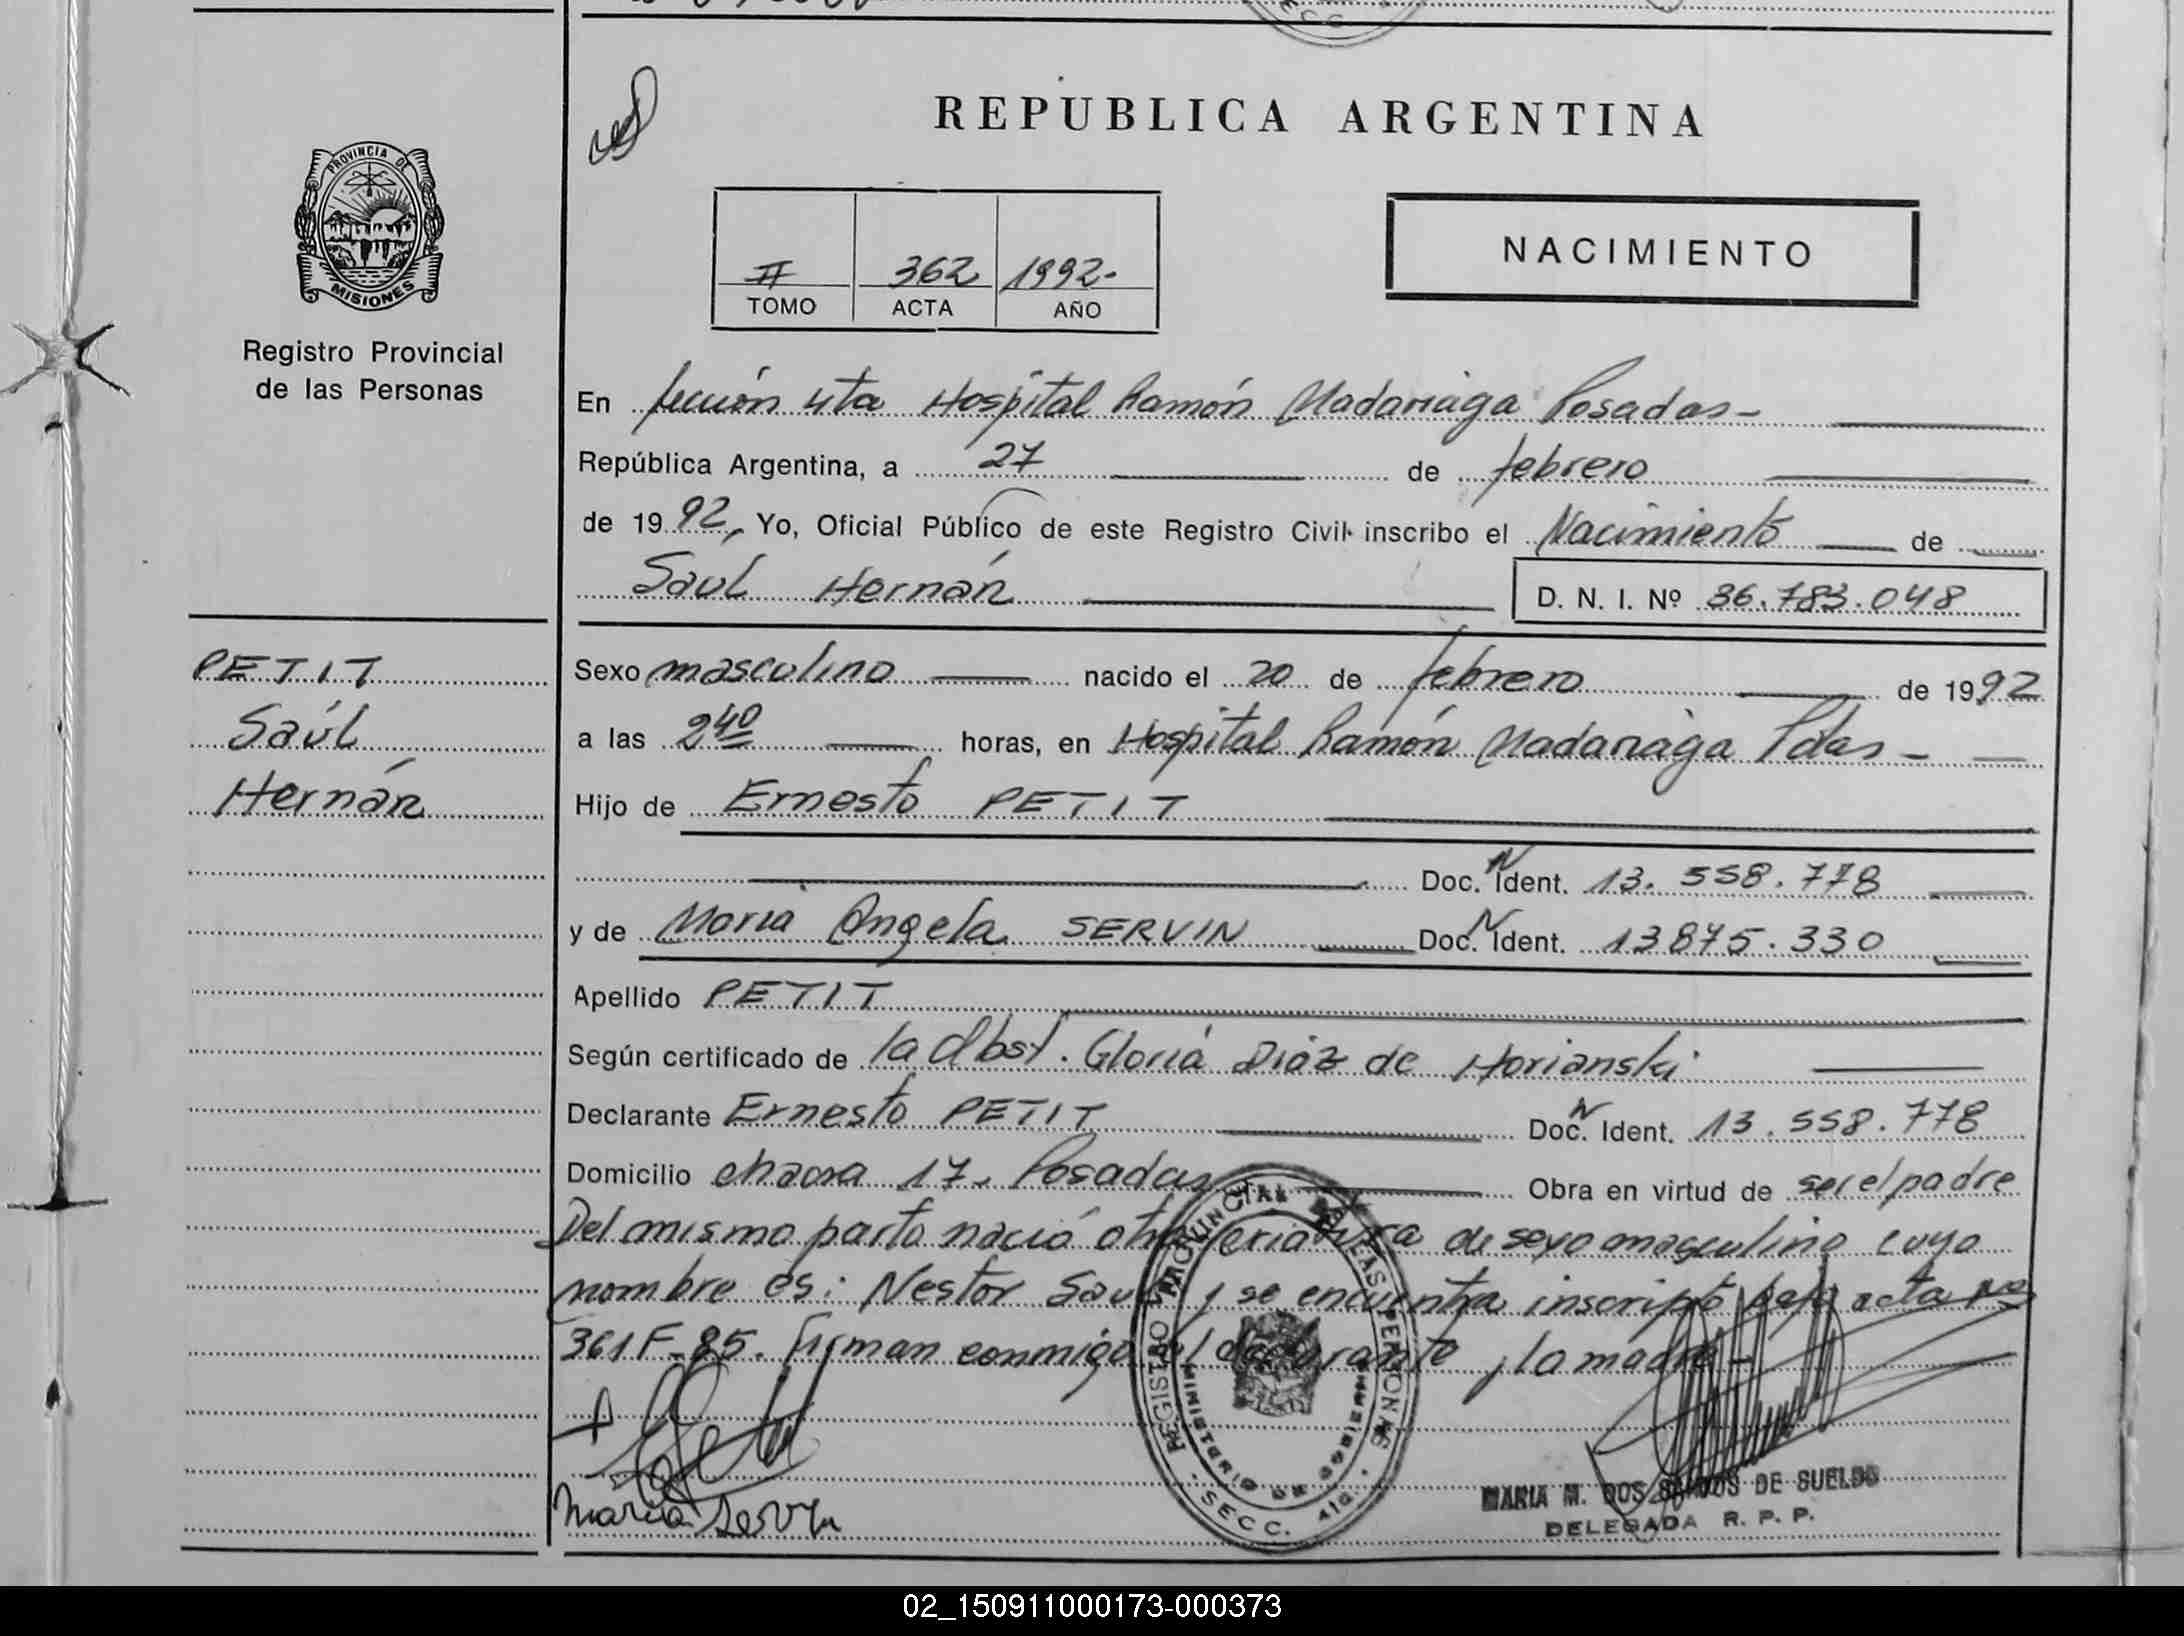 REPUBLICA ARGENTINA
PROVINCIA DE
MISIONES
Registro Provincial
de las Personas
II 362 1992-
TOMO ACTA AÑO
NACIMIENTO
En Sección 4ta Hospital Ramón Madariaga Posadas-
República Argentina, a 27 de febrero
de 1992, Yo, Oficial Público de este Registro Civil inscribo el Nacimiento de
Saúl Hernán D. N. I. Nº 36.783.048
PETIT
Saúl
Hernán
Sexo masculino nacido el 20 de febrero de 1992
a las 2 40 horas, en Hospital Ramón Madariaga Pdas-
Hijo de Ernesto PETIT
Doc. N Ident. 13.558.778
y de Maria Angela SERVIN Doc. N Ident. 13875.330
Apellido PETIT
Según certificado de la Obst. Gloria Diáz de Horianski
Declarante Ernesto PETIT Doc. N Ident. 13.558.778
Domicilio chacra 17. Posadas Obra en virtud de ser el padre
Del mismo parto nació otra criatura de sexo masculino cuyo
nombre es: Nestor Saul y se encuentra inscripto bajo acta nº
361 F-85. Firman conmigo el declarante y la madre-
REGISTRO PROVINCIAL DE LAS PERSONAS
MINISTERIO DE GOBIERNO
SECC. 4ta.
Maria Servin
MARIA M. DOS SANTOS DE SUELDO
DELEGADA R. P. P.
02_150911000173-000373